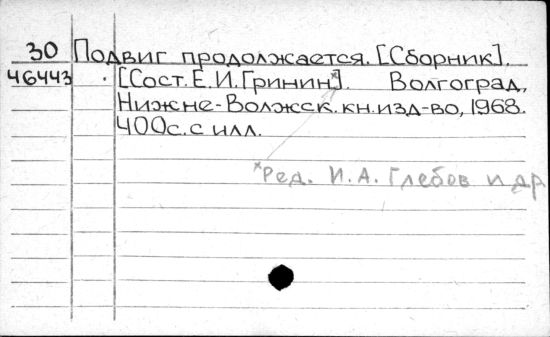 30 Подвиг продолжается. [Сборник].
46443 . [Сост. Е.И.Гринин*]. Волгоград,
Нижне-Волжск.кн.изд-во, 1968.
400с.с илл.
*Ред. И.А. Глебов и др